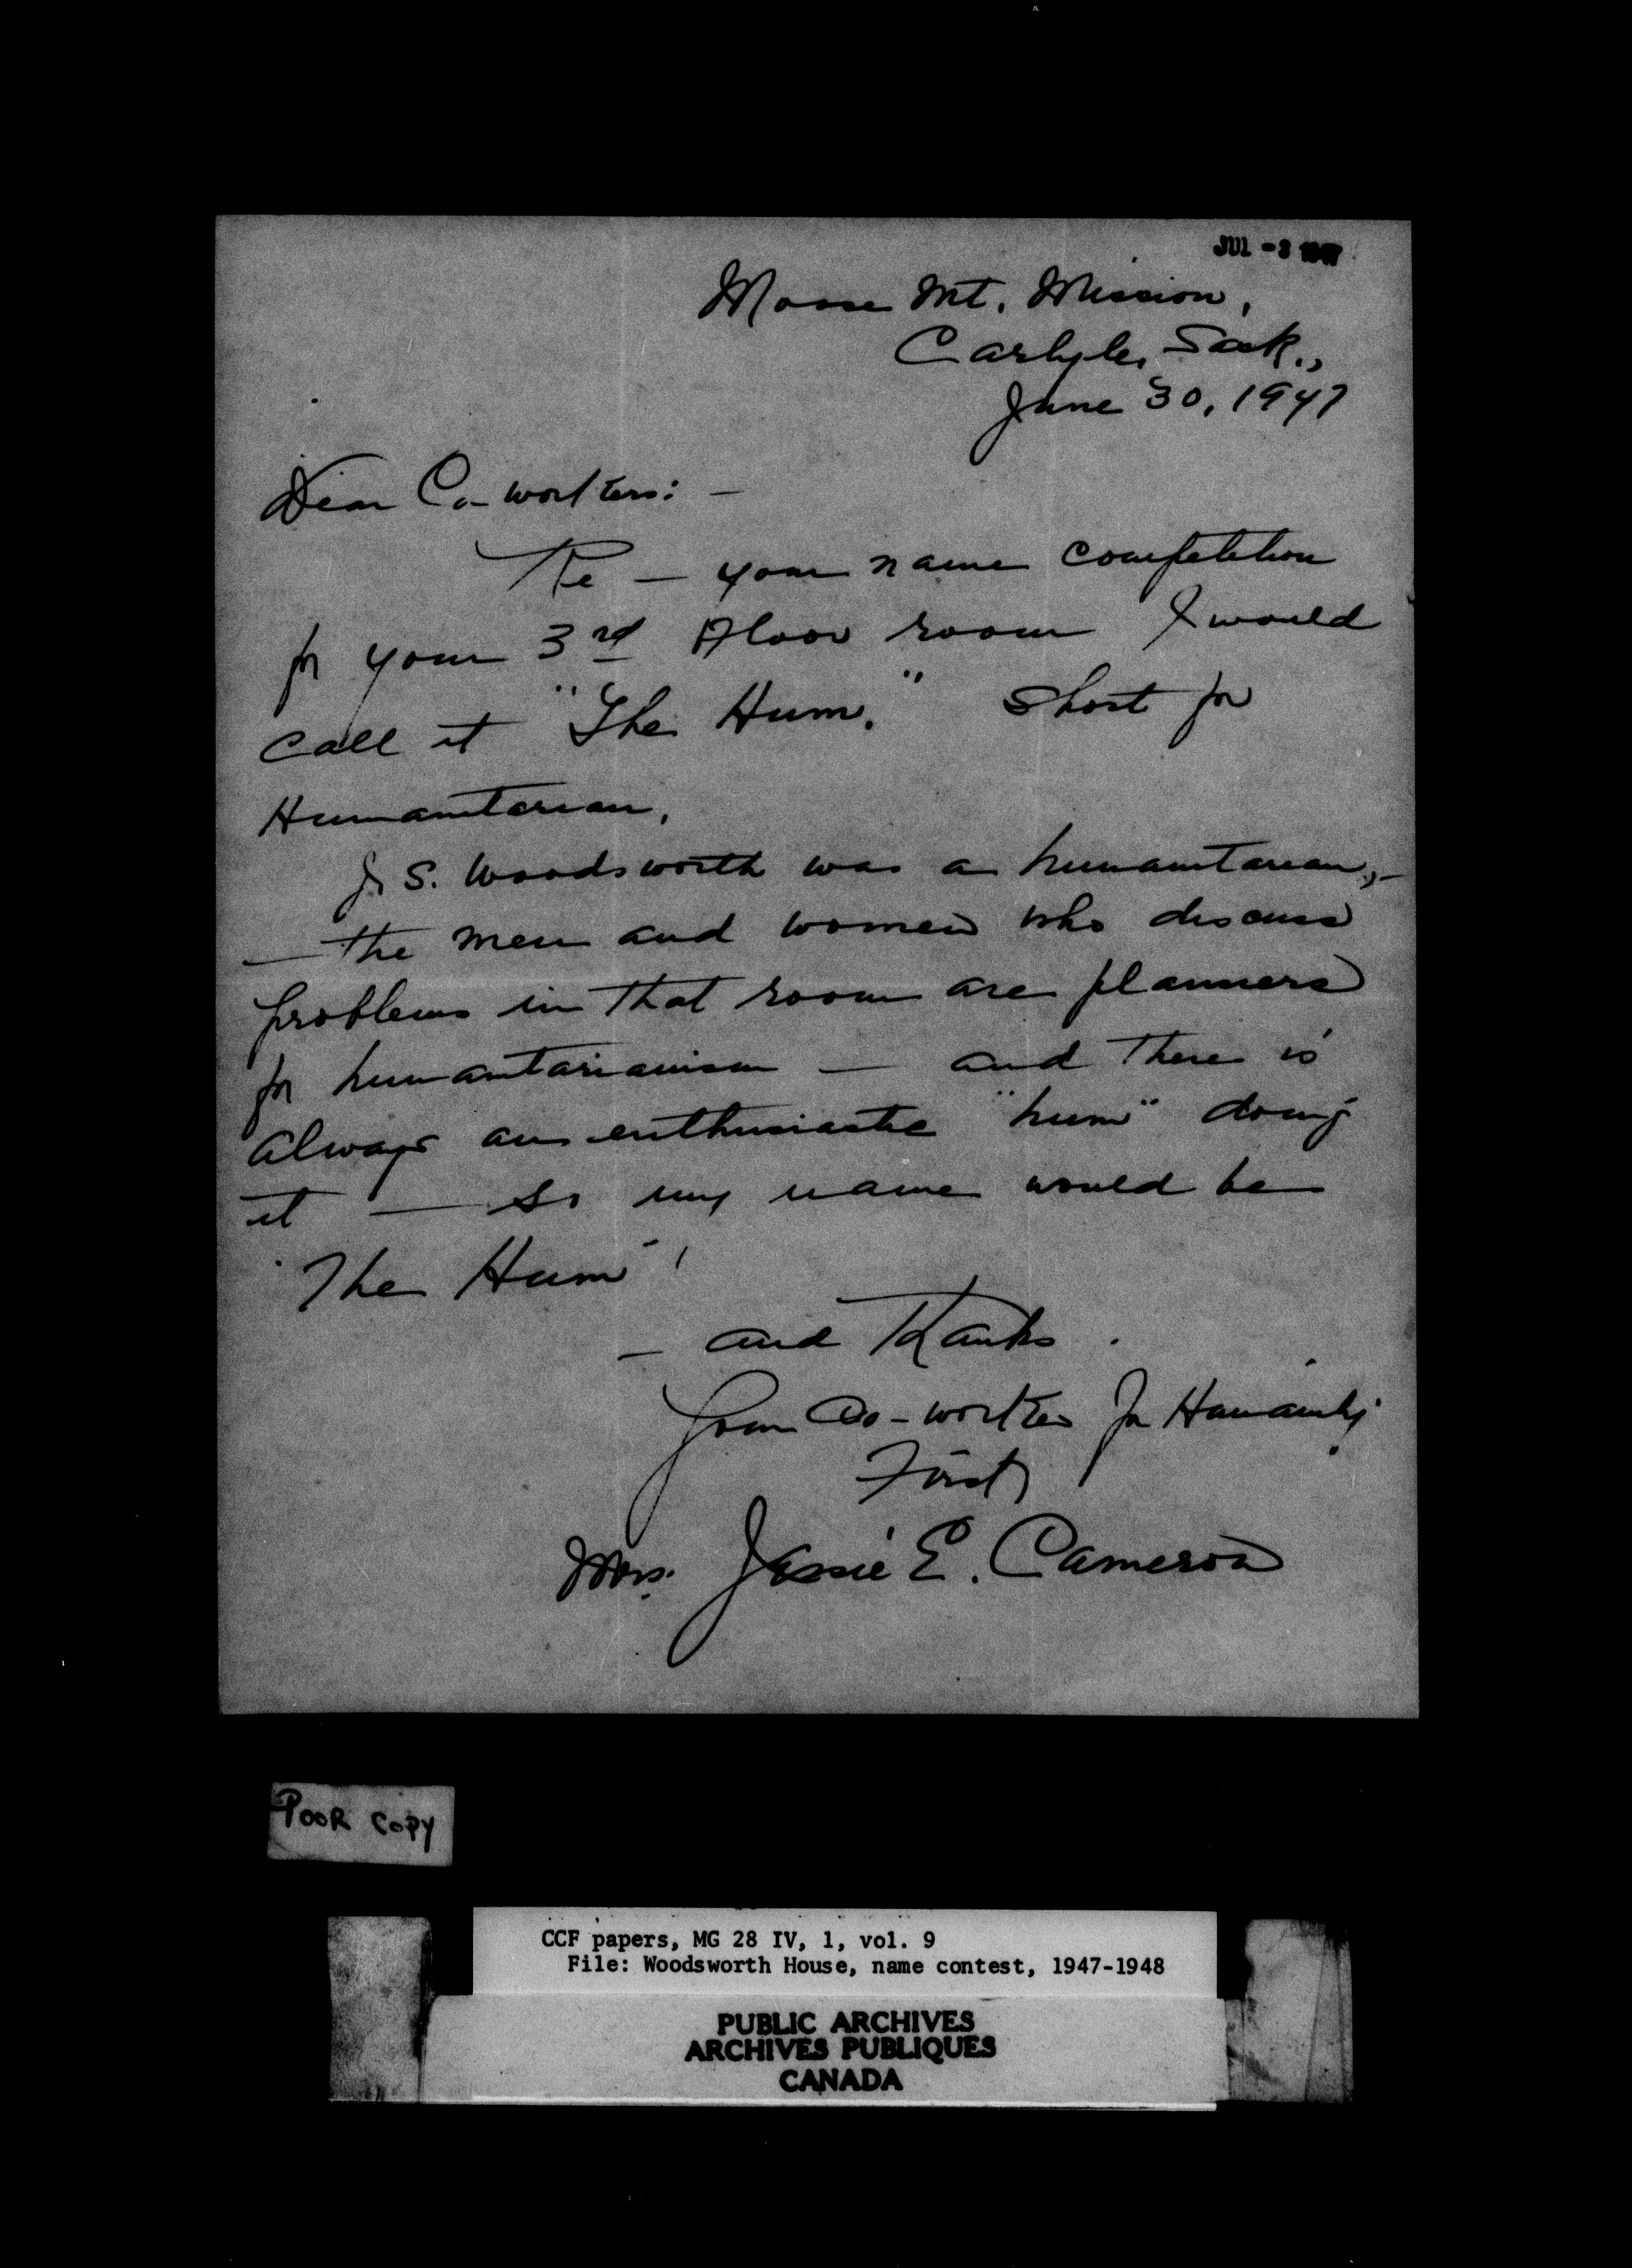 JUL -3 1947
Moose Mt. Mission,
Carlyle, Sask.,
June 30, 1947
Dear Co-workers: —
Re — your name competition
for your 3rd Floor room I would
call it "The Hum." Short for
Humanitarian.
J. S. Woodsworth was a humanitarian, —
— the men and women who discuss
problems in that room are planners
for humanitarianism — and there is
always an enthusiastic "hum" doing
it — So my name would be
"The Hum"!
— and Thanks.
Your Co-worker for Humanity
First,
Mrs. Jessie E. Cameron
POOR COPY
CCF papers, MG 28 IV, 1, vol. 9
File: Woodsworth House, name contest, 1947-1948
PUBLIC ARCHIVES
ARCHIVES PUBLIQUES
CANADA